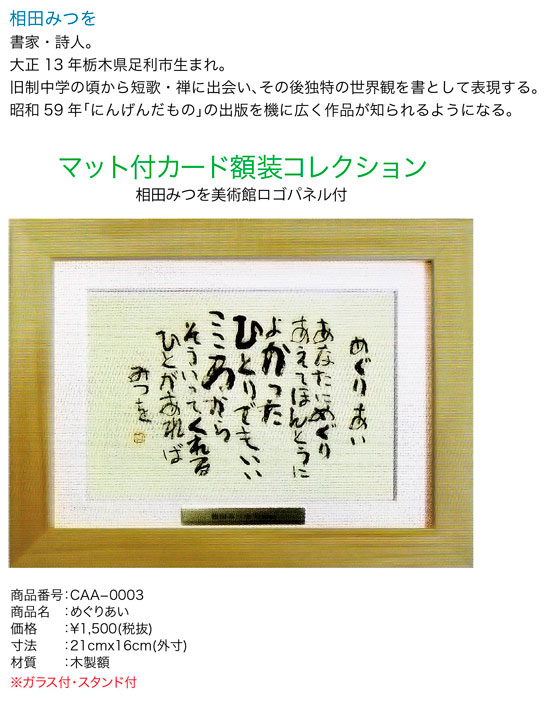 相田みつを
書家・詩人。
大正 13 年栃木県足利市生まれ。
旧制中学の頃から短歌・禅に出会い、その後独特の世界観を書として表現する。
昭和 59 年「にんげんだもの」の出版を機に広く作品が知られるようになる。
マット付カード額装コレクション
相田みつを美術館ロゴパネル付
めぐりあい
あなたにめぐり
あえてほんとうに
よかった
ひとりでもいい
こころから
そういってくれる
ひとがあれば
みつを
商品番号：CAA−0003
商品名　：めぐりあい
価格　　：¥1,500(税抜)
寸法　　：21cmx16cm(外寸)
材質　　：木製額
※ガラス付・スタンド付